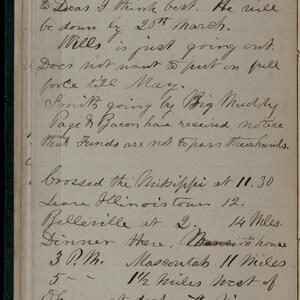 to Dear I think best. He will
be down by 20th March.
Wells is just going out.
Does not want to put on full
force till May.
Smith going by Big Muddy
Page & Bacon have received notice
that Funds are not to pass their hands.
Crossed the Missippi at 11.30
Leave Illinois town 12.
Belleville at 2. 14 Miles.
Dinner there, Mansion house
3 P.M. Mascoutah 11 Miles
5 - 1 1/2 Miles West of